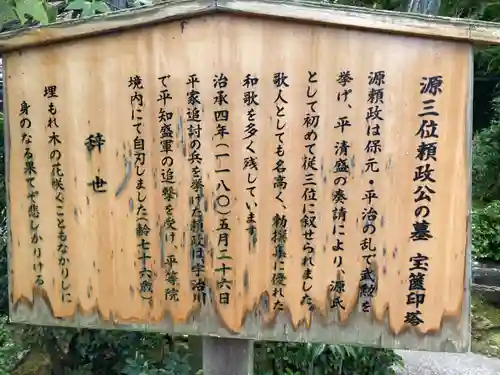 源三位頼政公の墓 宝篋印塔
源頼政は保元・平治の乱で武勲を
挙げ、平 清盛の奏請により、源氏
として初めて従三位に叙せられました。
歌人としても名高く、勅撰集に優れた
和歌を多く残しています。
治承四年(一一八〇)五月二十六日
平家追討の兵を挙げた頼政は宇治川
で平知盛軍の追撃を受け、平等院
境内にて自刃しました(齢七十六歳)
辞世
埋もれ木の花咲くこともなかりしに
身のなる果てぞ悲しかりける